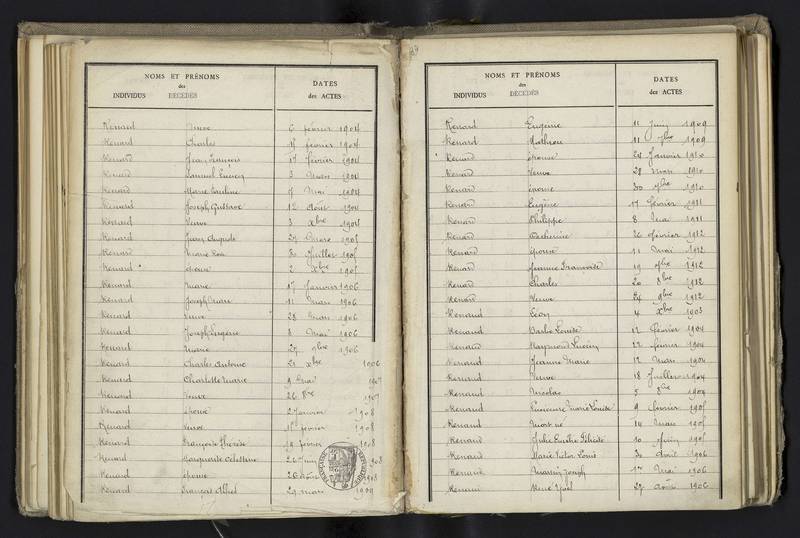 NOMS ET PRÉNOMS
des
INDIVIDUS DÉCÉDÉS
DATES
des ACTES
Renard Veuve 6 février 1904
Renard Charles février 1904
Renard Jean François 17 février 1904
Renard Samuel Lucien 3 Mars 1904
Renard Marie Pauline Mai 1904
Renard Joseph Gustave 12 Août 1904
Renard Veuve 3 Xbre 1904
Renard Jean Auguste 29 1905
Renard Marie 30 Juillet 1905
Renard épouse 2 Xbre 1905
Renard Marie 17 Janvier 1906
Renard Joseph Marie 11 Mars 1906
Renard Veuve 28 Mars 1906
Renard Joseph Eugène 8 Mai 1906
Renard Marie 27 9bre 1906
Renard Charles Antoine 21 Xbre 1906
Renard Charlotte Marie 9 Mai 1907
Renard Veuve 26 8bre 1907
Renard épouse 2 Janvier 1908
Renard Veuve février 1908
Renard Françoise Thérèse 19 février 1908
Renard Marguerite Célestine 26 Juin 1908
Renard épouse 26 août 1908
Renard François Albert 29 mars 1909
NOMS ET PRÉNOMS
des
INDIVIDUS DÉCÉDÉS
DATES
des ACTES
Renard Eugénie 11 Juin 1909
Renard Mathieu 11 7bre 1909
Renard épouse 24 Janvier 1910
Renard Veuve 28 Mars 1910
Renard épouse 30 1910
Renard Eugène 17 février 1911
Renard Philippe 8 Mai 1911
Renard Catherine 26 février 1912
Renard épouse 11 Mai 1912
Renard Jeanne Françoise 19 1912
Renard Charles 20 8bre 1912
Renard Veuve 24 9bre 1912
Renaud Léon 4 Xbre 1903
Renaud Barbe Louise 12 Février 1904
Renaud Raymond Lucien 22 février 1904
Renaud Jeanne Marie 12 Mars 1904
Renaud Veuve 18 Juillet 1904
Renaud Nicolas 5 8bre 1904
Renaud Marie Louise 9 février 1905
Renaud Mort né 14 Mars 1905
Renaud Julie Félicité 10 Juin 1905
Renaud Marie Victor Louis 30 Avril 1906
Renaud Joseph Mai 1906
Renaud René Noël 27 Août 1906